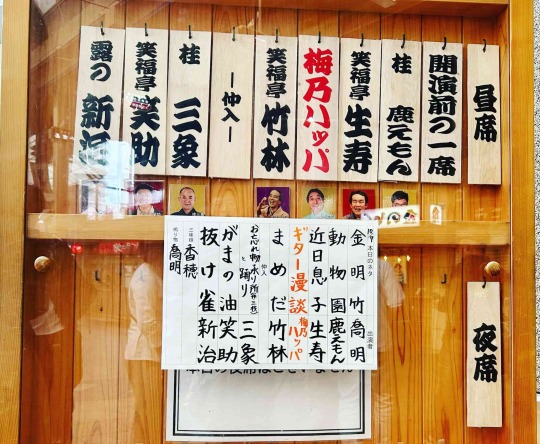 昼席
開演前の一席
桂 鹿えもん
笑福亭 生寿
梅乃ハッパ
笑福亭 竹林
ー仲入ー
桂 三象
笑福亭 笑助
露の 新治
本日のネタ 出演者
金明竹 喬明
動物園 鹿えもん
近日息子 生寿
ギター漫談 梅乃ハッパ
まめだ 竹林
仲入
お忘れ物承り所 と踊り 三象
がまの油 笑助
抜け雀 新治
三味線 香穂
鳴り物 喬明
夜席
本日の夜席はございません